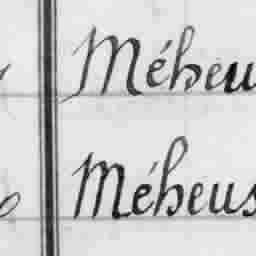 Méheu
Méheus